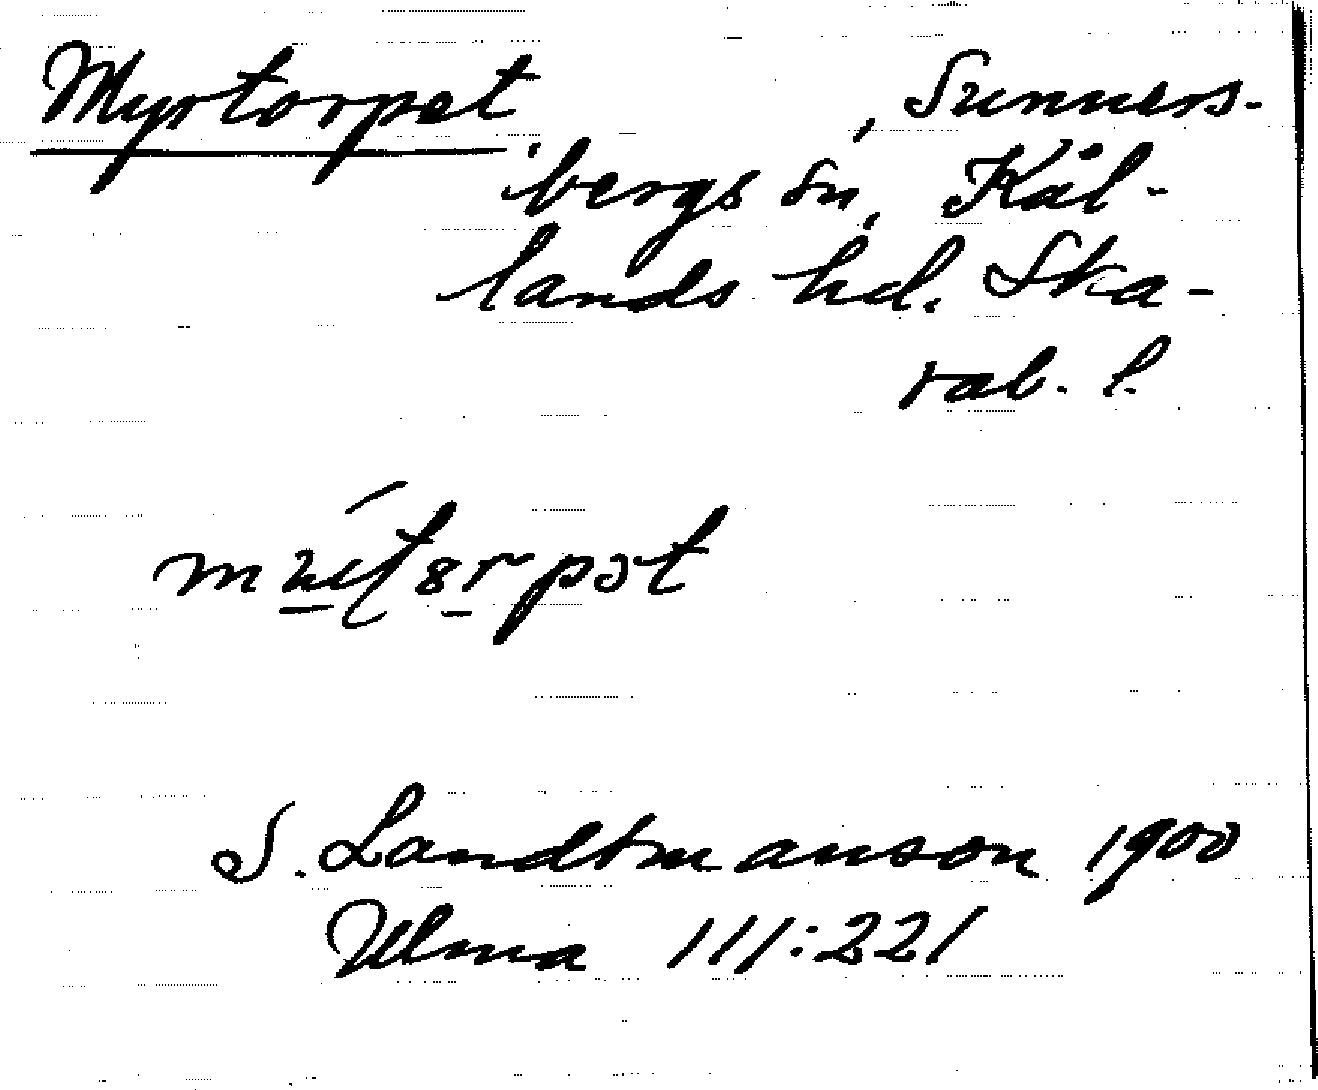 Myrtorpet, Sunners-
bergs sn, Kål-
lands hd. Ska-
rab. l.
S. Landtmanson 1900
Ulma 111:221